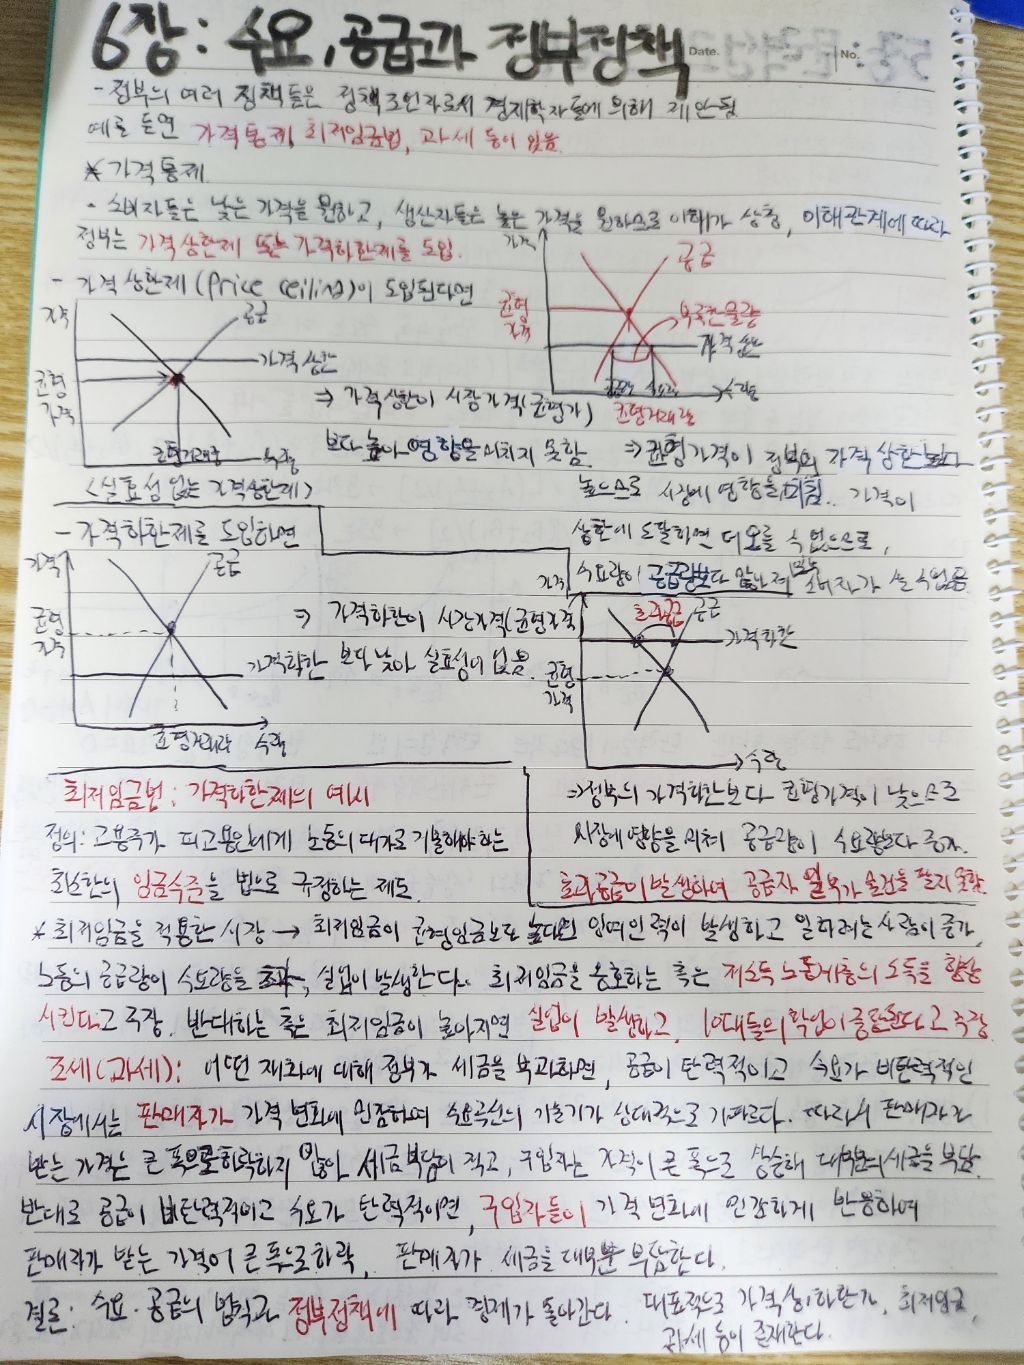 6장: 수요, 공급과 정부정책
Date. No.
- 정부의 여러 정책들은 정책조언자로서 경제학자들에 의해 제안됨
예를 들면 가격통제, 최저임금법, 과세 등이 있음.
* 가격통제
- 소비자들은 낮은 가격을 원하고, 생산자들은 높은 가격을 원하므로 이해가 상충, 이해관계에 따라
정부는 가격상한제 또는 가격하한제를 도입.
- 가격상한제(Price ceiling)이 도입된다면
가격
공급
가격상한
균형
가격
균형거래량
수량
<실효성 없는 가격상한제>
⇒ 가격상한이 시장가격(균형가)
보다 높아 영향을 미치지 못함.
가격
공급
균형
가격
부족한 물량
가격상한
공급량 수요량
수량
균형거래량
⇒ 균형가격이 정부의 가격 상한보다
높으므로 시장에 영향을 미침. 가격이
상한에 도달하면 더 오를 수 없으므로,
수요량이 공급량보다 많난제 모든 소비자가 살 수 없음
- 가격하한제를 도입하면
가격
공급
균형
가격
가격하한
균형거래량 수량
⇒ 가격하한이 시장가격(균형가격
보다 낮아 실효성이 없음.
가격
초과공급
공급
가격하한
균형
가격
수량
⇒정부의 가격하한보다 균형가격이 낮으므로
시장에 영향을 미쳐 공급량이 수요량보다 증가.
초과공급이 발생하여 공급자 일부가 물건을 팔지 못함.
최저임금법: 가격하한제의 예시
정의: 고용주가 피고용인에게 노동의 대가로 지불해야 하는
최소한의 임금수준을 법으로 규정하는 제도.
* 최저임금을 적용한 시장 → 최저임금이 균형임금보다 높다면 잉여인력이 발생하고 일하려는 사람이 증가,
노동의 공급량이 수요량을 초과, 실업이 발생한다. 최저임금을 옹호하는 측은 저소득 노동계층의 소득을 향상
시킨다고 주장. 반대하는 측은 최저임금이 높아지면 실업이 발생하고, 10대들의 학업이 중단된다고 주장
조세(과세): 어떤 재화에 대해 정부가 세금을 부과하면, 공급이 탄력적이고 수요가 비탄력적인
시장에서는 판매자가 가격 변화에 민감하여 수요곡선의 기울기가 상대적으로 가파르다. 따라서 판매자가
받는 가격은 큰 폭으로 하락하지 않아 세금부담이 적고, 구입자는 가격이 큰 폭으로 상승해 대부분의 세금을 부담.
반대로 공급이 비탄력적이고 수요가 탄력적이면, 구입자들이 가격 변화에 민감하게 반응하여
판매자가 받는 가격이 큰 폭으로 하락, 판매자가 세금을 대부분 부담한다.
결론: 수요·공급의 법칙과 정부정책에 따라 경제가 돌아간다. 대표적으로 가격상(하)한가, 최저임금,
과세 등이 존재한다.